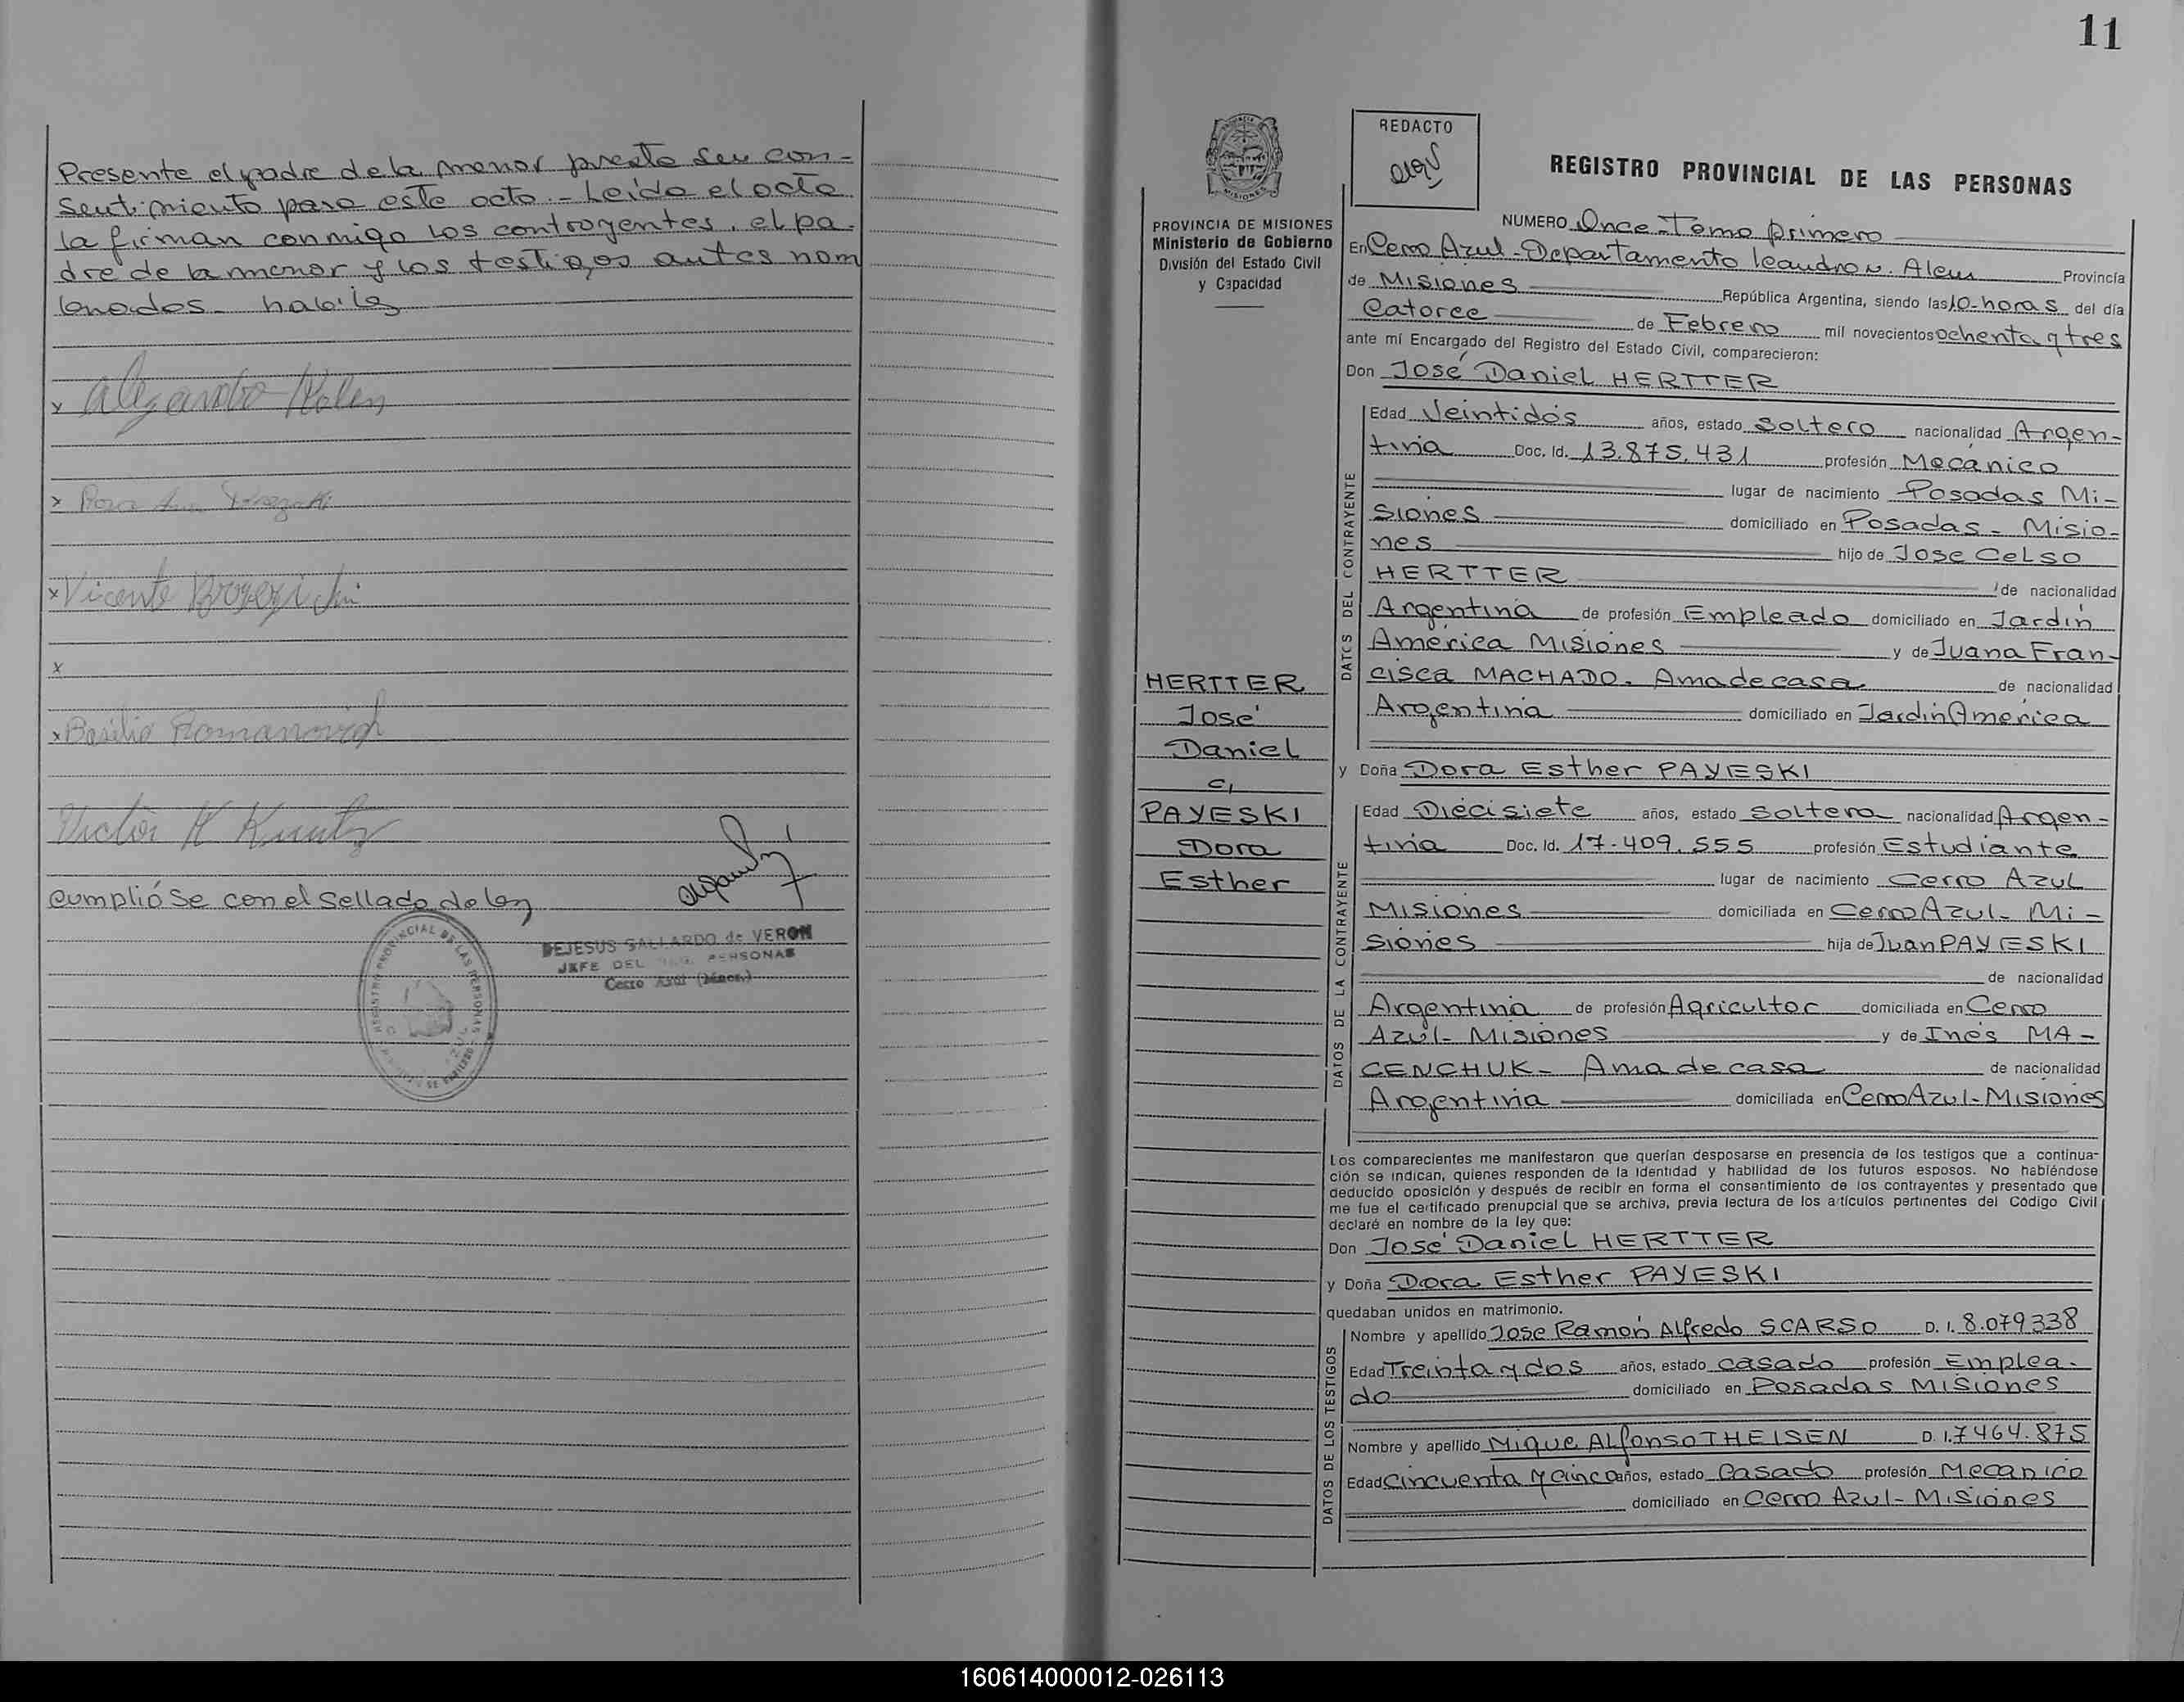 Presente el padre de la menor presta su con-
sentimiento para este acto.- Leido el acta
la firman conmigo los contrayentes, el pa-
dre de la menor y los testigos antes nom
brados habiles
x Alejandro
x Rosa
x Vicente
x
x Basilio Romanovich
Victor H Kuntz
cumplióse con el sellado de ley
REGISTRO PROVINCIAL DE LAS PERSONAS
DEJESUS GALLARDO de VERON
JEFE DEL REG. PERSONAS
Cerro Azul (Mnes.)
11
REDACTO
REGISTRO PROVINCIAL DE LAS PERSONAS
PROVINCIA DE MISIONES
Ministerio de Gobierno
División del Estado Civil
y Capacidad
HERTTER
José
Daniel
c/
PAYESKI
Dora
Esther
NUMERO Once - Tomo primero
En Cerro Azul - Departamento Leandro N. Alem Provincia
de Misiones República Argentina, siendo las 10-horas del día
Catorce de Febrero mil novecientos ochenta y tres
ante mí Encargado del Registro del Estado Civil, comparecieron:
Don José Daniel HERTTER
DATOS DEL CONTRAYENTE
Edad Veintidós años, estado Soltero nacionalidad Argen-
tina Doc. Id. 13.875.431 profesión Mecánico
lugar de nacimiento Posadas Mi-
siones domiciliado en Posadas - Misio-
nes hijo de Jose Celso
HERTTER de nacionalidad
Argentina de profesión Empleado domiciliado en Jardín
América Misiones y de Juana Fran-
cisca MACHADO. Ama de casa de nacionalidad
Argentina domiciliado en Jardín América
y Doña Dora Esther PAYESKI
DATOS DE LA CONTRAYENTE
Edad Diecisiete años, estado Soltera nacionalidad Argen-
tina Doc. Id. 17.409.555 profesión Estudiante
lugar de nacimiento Cerro Azul
Misiones domiciliada en Cerro Azul - Mi-
siones hija de Juan PAYESKI
de nacionalidad
Argentina de profesión Agricultor domiciliada en Cerro
Azul - Misiones y de Inés MA-
CENCHUK - Ama de casa de nacionalidad
Argentina domiciliada en Cerro Azul - Misiones
Los comparecientes me manifestaron que querían desposarse en presencia de los testigos que a continua-
ción se indican, quienes responden de la identidad y habilidad de los futuros esposos. No habiéndose
deducido oposición y después de recibir en forma el consentimiento de los contrayentes y presentado que
me fue el certificado prenupcial que se archiva, previa lectura de los artículos pertinentes del Código Civil
declaré en nombre de la ley que:
Don José Daniel HERTTER
y Doña Dora Esther PAYESKI
quedaban unidos en matrimonio.
DATOS DE LOS TESTIGOS
Nombre y apellido Jose Ramón Alfredo SCARSO D. I. 8.079338
Edad Treinta y dos años, estado casado profesión Emplea-
do domiciliado en Posadas Misiones
Nombre y apellido Migue Alfonso THEISEN D. I. 7464.875
Edad Cincuenta y cinco años, estado Casado profesión Mecanico
domiciliado en Cerro Azul - Misiones
160614000012-026113